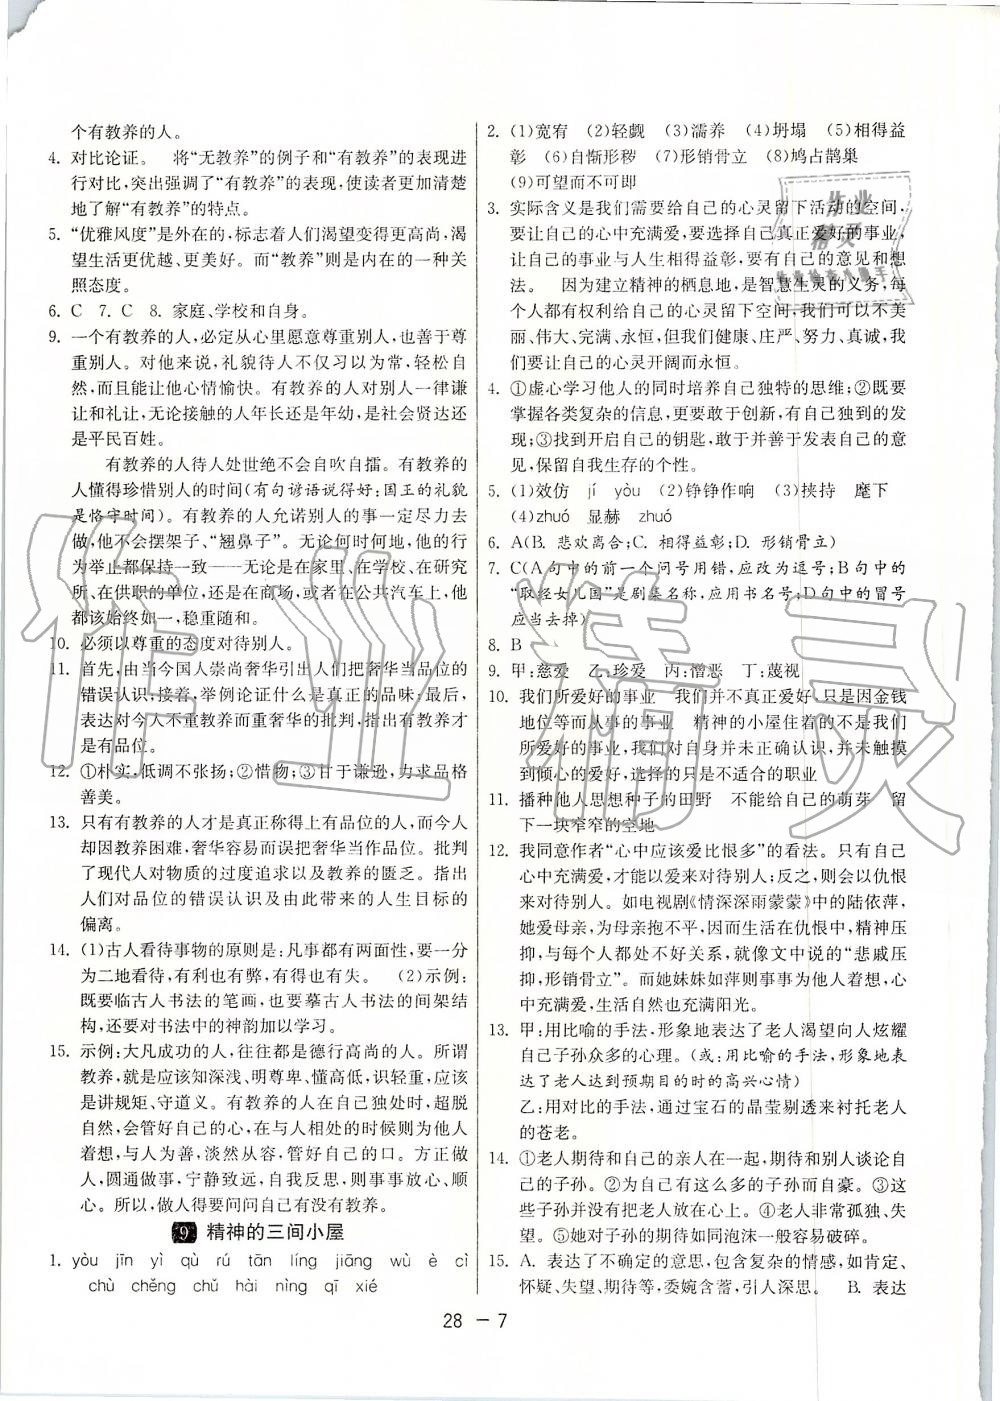 个有教养的人。
4. 对比论证。 将“无教养”的例子和“有教养”的表现进
行对比,突出强调了“有教养”的表现,使读者更加清楚
地了解“有教养”的特点。
5. “优雅风度”是外在的,标志着人们渴望变得更高尚,渴
望生活更优越、更美好。而“教养”则是内在的一种关
照态度。
6. C 7. C 8. 家庭、学校和自身。
9. 一个有教养的人,必定从心里愿意尊重别人,也善于尊
重别人。对他来说,礼貌待人不仅习以为常,轻松自
然,而且能让他心情愉快。有教养的人对别人一律谦
让和礼让,无论接触的人年长还是年幼,是社会贤达还
是平民百姓。
有教养的人待人处世绝不会自吹自擂。有教养的
人懂得珍惜别人的时间(有句谚语说得好:国王的礼貌
是恪守时间)。有教养的人允诺别人的事一定尽力去
做,他不会摆架子、“翘鼻子”。无论何时何地,他的行
为举止都保持一致——无论是在家里、在学校、在研究
所、在供职的单位,还是在商场,或者在公共汽车上,他
都该始终如一,稳重随和。
10. 必须以尊重的态度对待别人。
11. 首先,由当今国人崇尚奢华引出人们把奢华当品位的
错误认识,接着,举例论证什么是真正的品味;最后,
表达对今人不重教养而重奢华的批判,指出有教养才
是有品位。
12. ①朴实,低调不张扬;②惜物;③甘于谦逊,力求品格
善美。
13. 只有有教养的人才是真正称得上有品位的人,而今人
却因教养困难,奢华容易而误把奢华当作品位。批判
了现代人对物质的过度追求以及教养的匮乏。指出
人们对品位的错误认识及由此带来的人生目标的
偏离。
14. (1)古人看待事物的原则是:凡事都有两面性,要一分
为二地看待,有利也有弊,有得也有失。 (2)示例:
既要临古人书法的笔画,也要摹古人书法的间架结
构,还要对书法中的神韵加以学习。
15. 示例:大凡成功的人,往往都是德行高尚的人。所谓
教养,就是应该知深浅、明尊卑、懂高低,识轻重,应该
是讲规矩、守道义。有教养的人在自己独处时,超脱
自然,会管好自己的心。在与人相处的时候则为他人
着想,与人为善,淡然从容,管好自己的口。方正做
人,圆通做事,宁静致远,自我反思,则事事放心、顺
心。所以,做人得要问问自己有没有教养。
9 精神的三间小屋
1. yòu jīn yì qù rú tān líng jiāng wù è cì
chù chěng chǔ hài nìng qī xié
2. (1)宽宥 (2)轻觑 (3)濡养 (4)坍塌 (5)相得益
彰 (6)自惭形秽 (7)形销骨立 (8)鸠占鹊巢
(9)可望而不可即
3. 实际含义是我们需要给自己的心灵留下活动的空间,
要让自己的心中充满爱,要选择自己真正爱好的事业,
让自己的事业与人生相得益彰,要有自己的意见和想
法。 因为建立精神的栖息地,是智慧生灵的义务,每
个人都有权利给自己的心灵留下空间,我们可以不美
丽、伟大、完满、永恒,但我们健康、庄严、努力、真诚,我
们要让自己的心灵开阔而永恒。
4. ①虚心学习他人的同时培养自己独特的思维;②既要
掌握各类复杂的信息,更要敢于创新,有自己独到的发
现;③找到开启自己的钥匙,敢于并善于发表自己的意
见,保留自我生存的个性。
5. (1)效仿 jí yòu (2)铮铮作响 (3)挟持 麾下
(4)zhuó 显赫 zhuó
6. A(B. 悲欢离合;C. 相得益彰;D. 形销骨立)
7. C(A句中的前一个问号用错,应改为逗号;B句中的
“取经女儿国”是剧集名称,应用书名号;D句中的冒号
应当去掉)
8. B
9. 甲:慈爱 乙:珍爱 丙:憎恶 丁:蔑视
10. 我们所爱好的事业 我们并不真正爱好,只是因金钱
地位等而从事的事业 精神的小屋住着的不是我们
所爱好的事业,我们对自身并未正确认识,并未触摸
到倾心的爱好,选择的只是不适合的职业
11. 播种他人思想种子的田野 不能给自己的萌芽 留
下一块窄窄的空地
12. 我同意作者“心中应该爱比恨多”的看法。只有自己
心中充满爱,才能以爱来对待别人;反之,则会以仇恨
来对待别人。如电视剧《情深深雨蒙蒙》中的陆依萍,
她爱母亲,为母亲抱不平,生活在仇恨中,精神压
抑,与每个人都处不好关系,就像文中说的“悲戚压
抑,形销骨立”。而她妹妹如萍则事事为他人着想,心
中充满爱,生活自然也充满阳光。
13. 甲:用比喻的手法,形象地表达了老人渴望向人炫耀
自己子孙众多的心理。(或:用比喻的手法,形象地表
达了老人达到预期目的时的高兴心情)
乙:用对比的手法,通过宝石的晶莹剔透来衬托老人
的苍老。
14. ①老人期待和自己的亲人在一起,期待和别人谈论自
己的子孙。②老人因自己有这么多的子孙而自豪。③这
些子孙并没有把老人放在心上。④老人非常孤独、失
望。⑤她对子孙的期待如同泡沫一般容易破碎。
15. A. 表达了不确定的意思,包含复杂的情感,如肯定、
怀疑、失望、期待等,委婉含蓄,引人深思。 B. 表达
28－7
作业精灵
作业
精灵